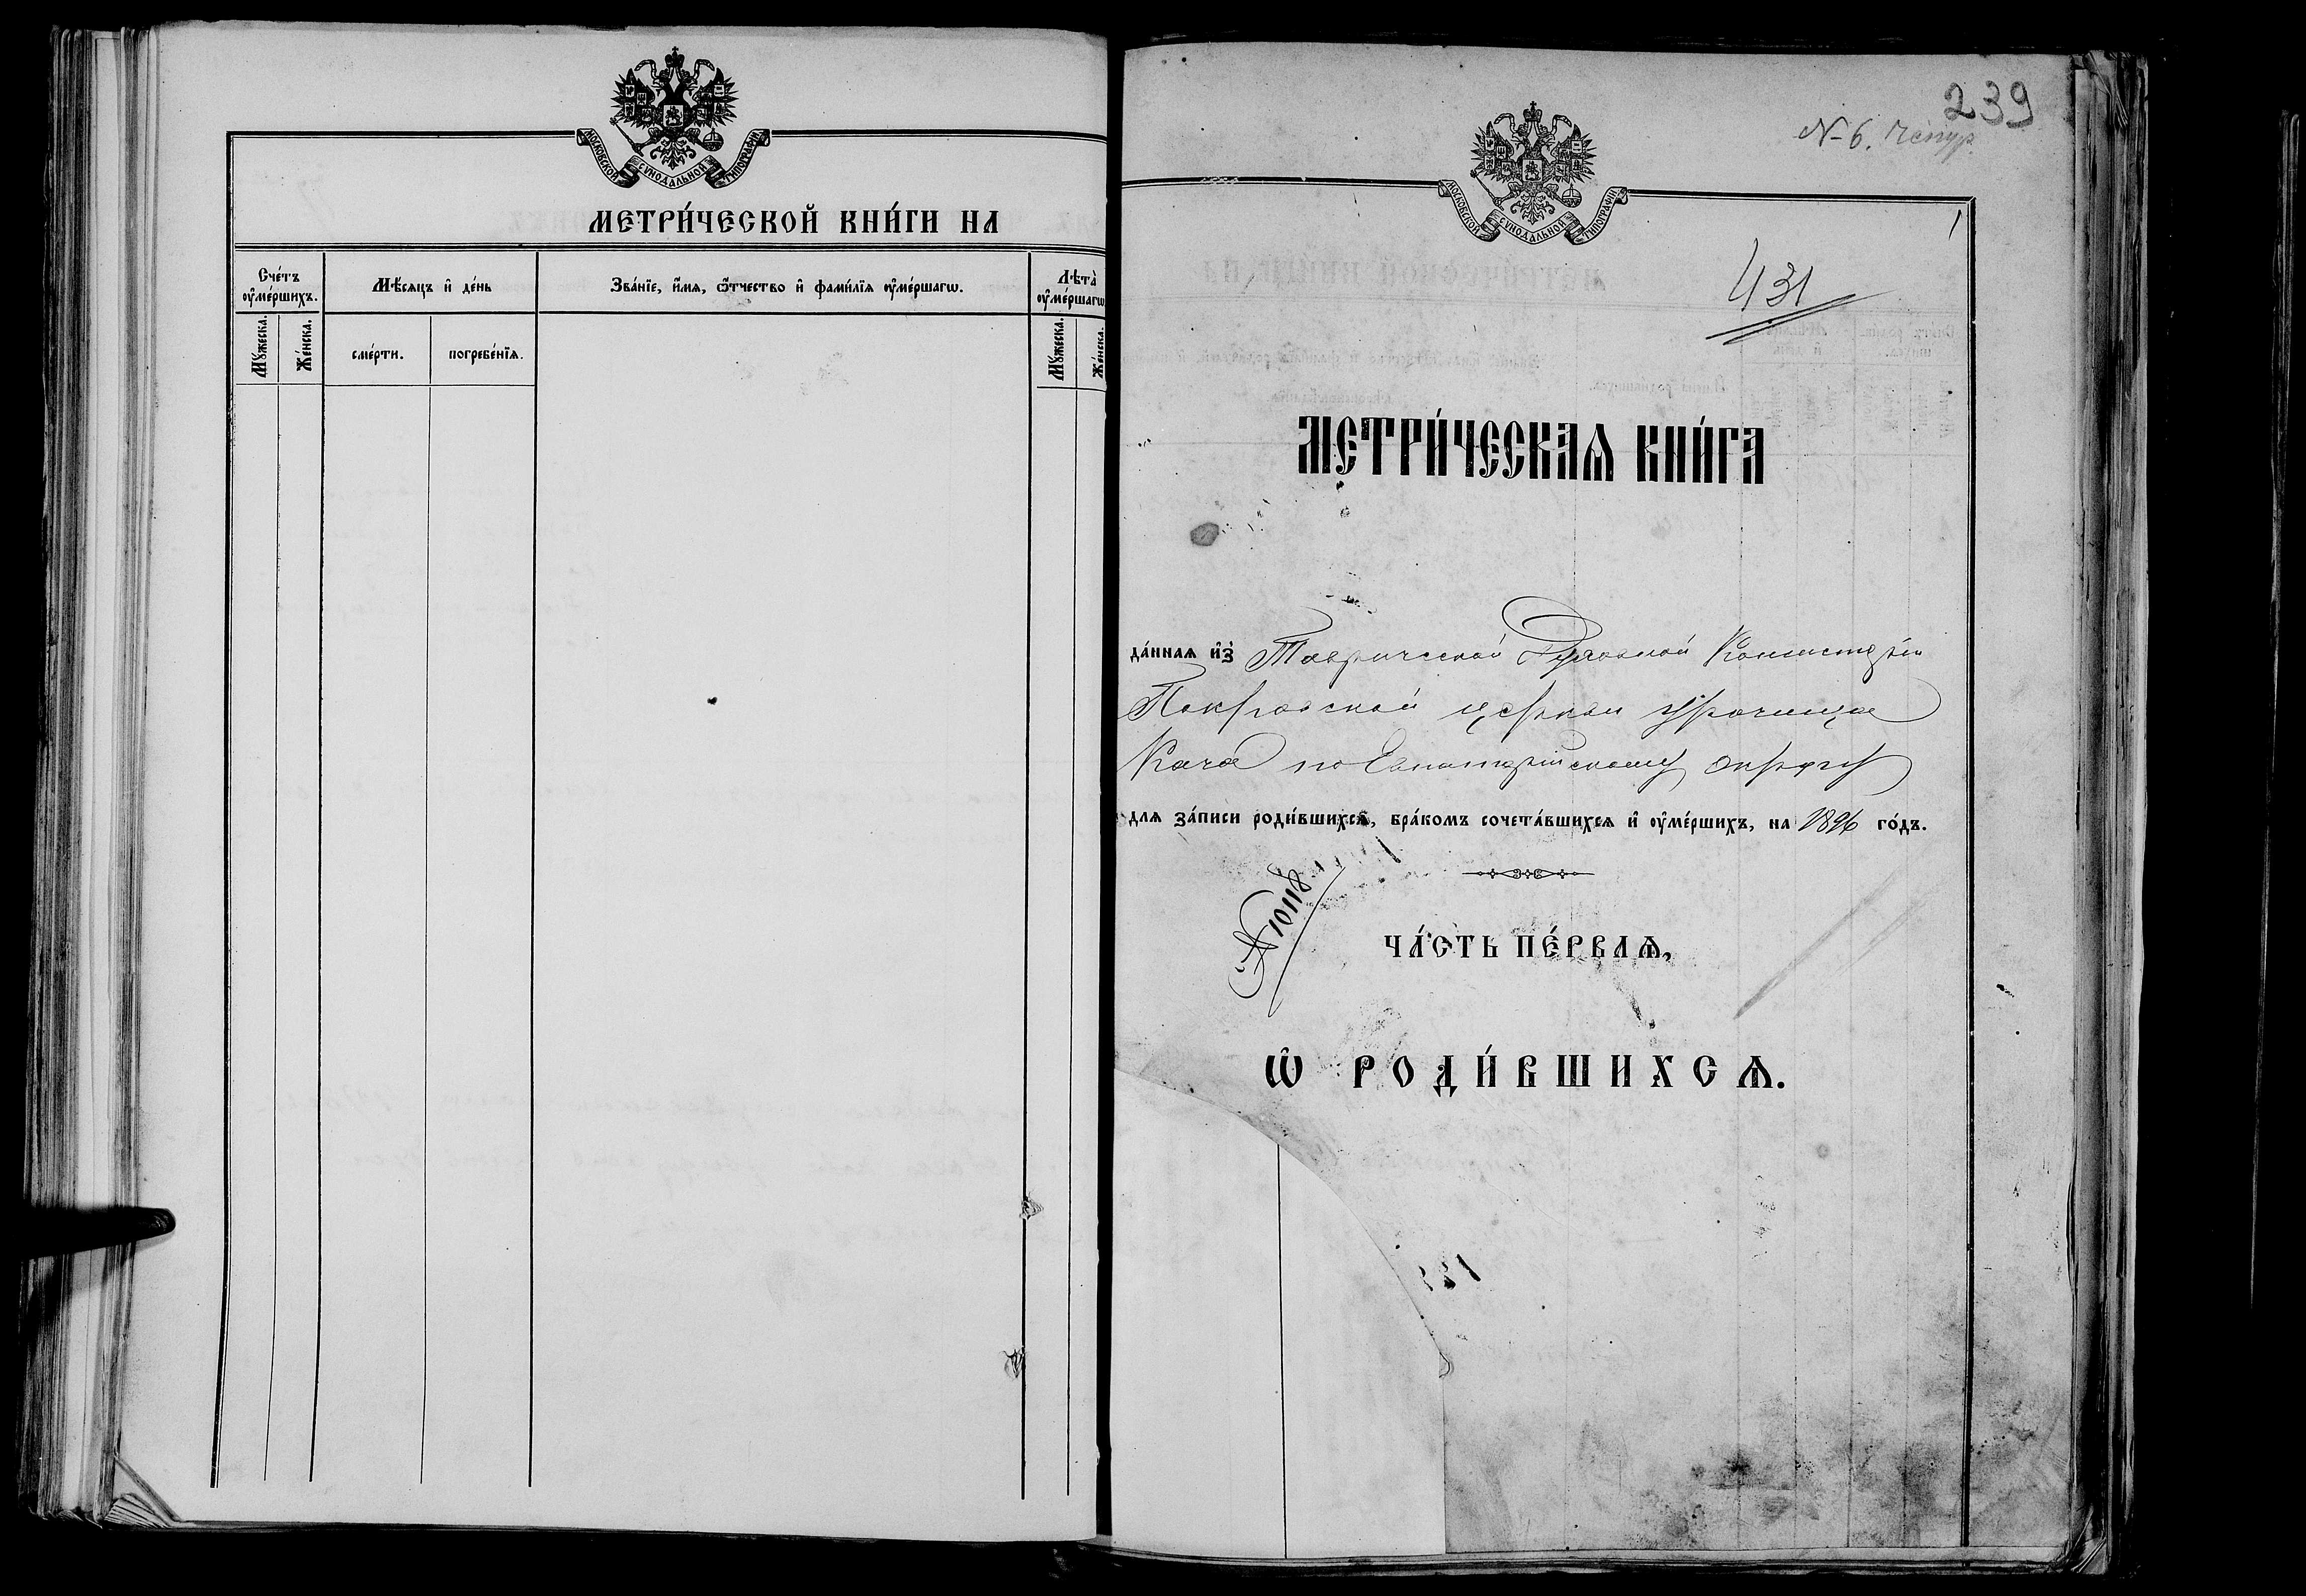 МОСКОВСКОЙ СѴНОДАЛЬНОЙ ТИПОГРАФІИ
МЕТРИ́ЧЕСКОЙ КНИ́ГИ НА
Сче́тъ оу҆ме́ршихъ.
Мѣ́сяцъ и҆ де́нь
Зва́нїе, и҆́мя, ѻ҆́тчество и҆ фами́лїя оу҆ме́ршагѡ.
Лѣта̀ оу҆ме́ршагѡ
Мꙋ́жеска.
Же́нска.
сме́рти.
погребе́нїѧ.
Мꙋ́жеска.
Же́нска.
239
N 6.
МОСКОВСКОЙ СѴНОДАЛЬНОЙ ТИПОГРАФІИ
1
431
МЕТРИ́ЧЕСКАѦ КНИ́ГА
да́ннаѧ и҆з̾ Таврической Духовной Консисторіи
Покровской церкви урочища
Кача по Евпаторійскому округу
для за́писи роди́вшихсѧ, бра́комъ сочета́вшихсѧ и҆ оу҆ме́ршихъ, на 1896 го́дъ.
№ 10118
ЧА́СТЬ ПЕ́РВАѦ,
Ѡ҆ РОДИ́ВШИХСѦ.